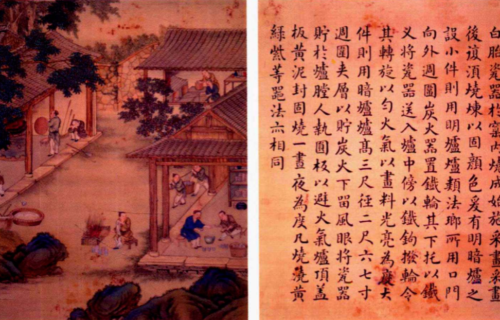 白胎瓷器於窰內燒成始施采畫采畫
後復湏燒煉以固顏色爰有明暗爐之
設小件則用明爐爐類法瑯所用口門
向外週圍炭火器置鐵輪其下托以鐵
义將瓷器送入爐中傍以鐵鈎撥輪令
其轉旋以勻火氣以畫料光亮為度大
件則用暗爐爐高三尺徑二尺六七寸
週圍夾層以貯炭火下留風眼將瓷器
貯於爐膛人執圓板以避火氣爐頂盖
板黃泥封固燒一晝夜為度凡燒澆黃
綠紫等器法亦相同